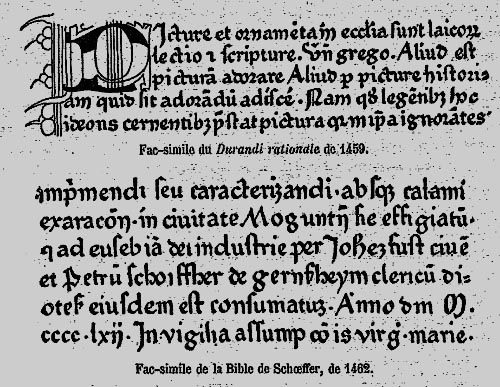 Picture et ornamēta in ecclia sunt laicorꝝ
lectio ⁊ scripture. Vn̄ grego. Aliud est
picturā adorare Aliud ꝑ picture histori
am quid sit adorādū adiscē. Nam qđ legētibꝫ hoc
ideons cernentibꝫ p̄stat pictura qͥ in ip̄a ignorātes
Fac-simile du Durandi rationale de 1459.
imp̄mendi seu caracterizandi. absqꝫ calami
exaracōn̄. in ciuitate Moguntn̄ sic effigiatū.
⁊ ad eusebiā dei industrie per Joh̄eꝫ fust ciuē
et Petrū schoiffher de gernsheym clericū di⸗
oteſ eiusdem est consumatuꝫ. Anno dm̄ M.
cccc. lxij. In vigilia assumpcōis virg̓. marie.
Fac-simile de la Bible de Schœffer, de 1462.